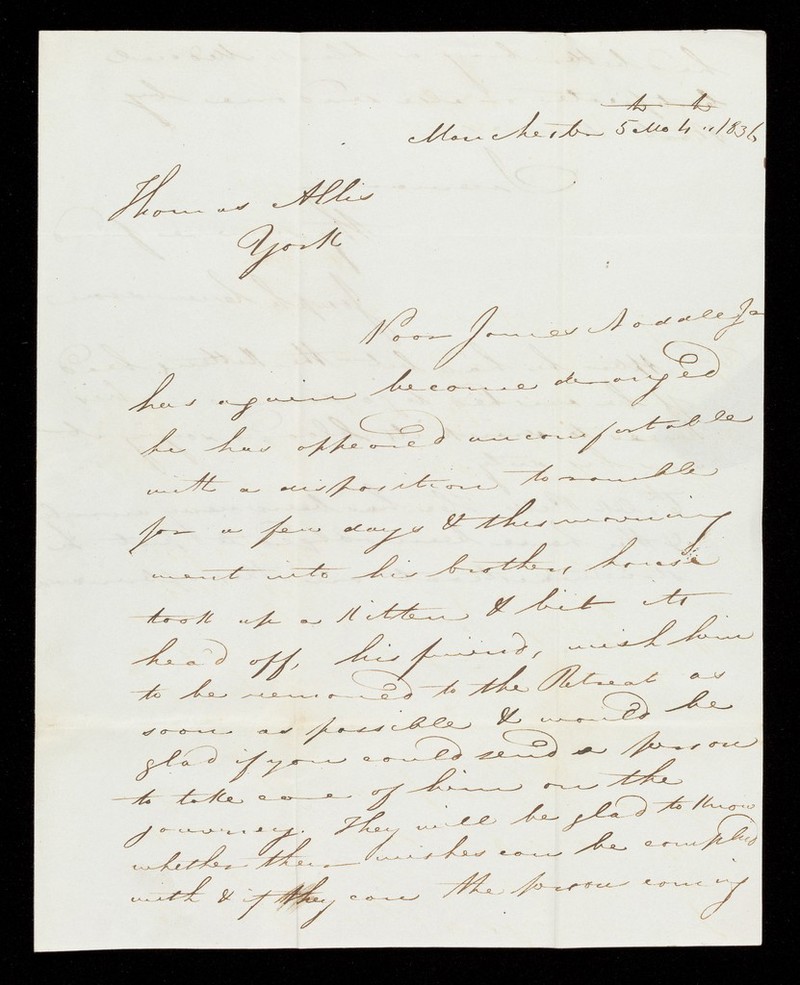 Manchester 5 Mo 4th 1836
Thomas Allis
York
Poor James Noddle Jr
has again become deranged
he has appeared uncomfortable
with a disposition to ramble
for a few days & this morning
went into his brothers house
took up a Kitten & bit its
head off, his friends, wish him
to be removed to the Retreat as
soon as possible & would be
glad if you could send a person
to take care of him on the
journey. They will be glad to know
whether their wishes can be complied
with & if they can the person coming